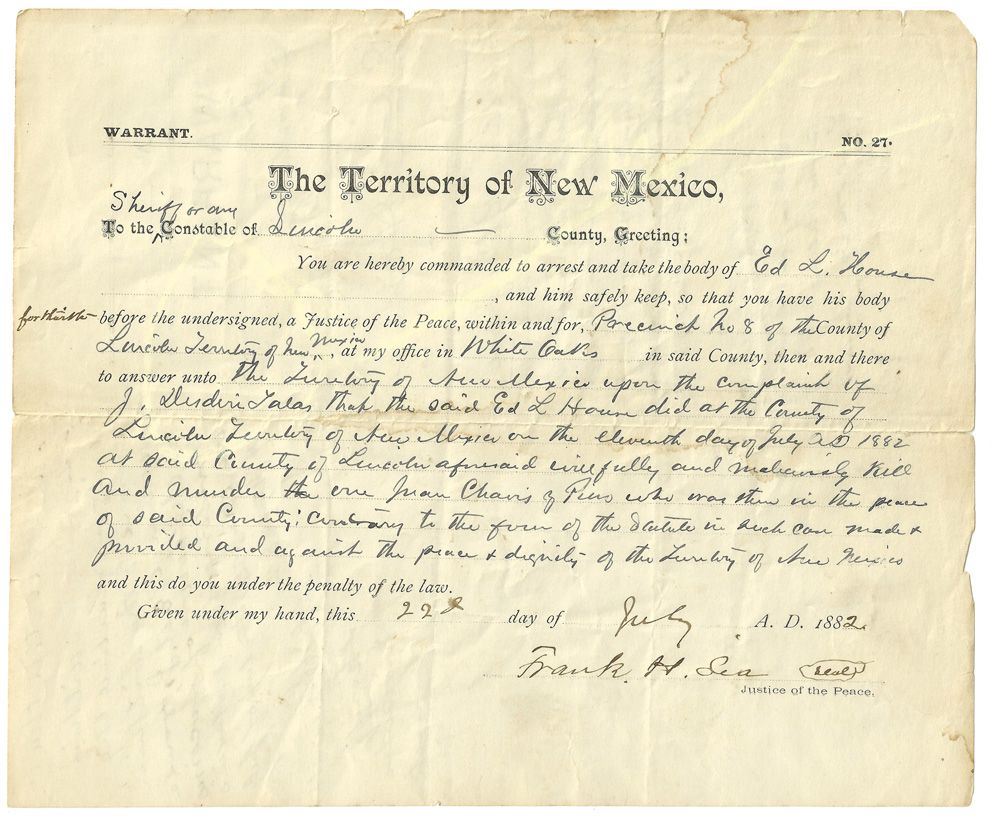 WARRANT.
NO. 27.
The Territory of New Mexico,
Sheriff or any
To the Constable of Lincoln County, Greeting;
You are hereby commanded to arrest and take the body of Ed L. House
, and him safely keep, so that you have his body
forthwith before the undersigned, a Justice of the Peace, within and for, Precinct No 8 of the County of
Lincoln Territory of New Mexico, at my office in White Oaks in said County, then and there
to answer unto The Territory of New Mexico upon the complaint of
J. that the said Ed L House did at the County of
Lincoln Territory of New Mexico on the eleventh day of July AD 1882
at said County of Lincoln aforesaid and kill
and murder the one Juan Chavis y Pino who was then in the peace
of said County; contrary to the form of the Statute in such case made &
provided and against the peace & dignity of the Territory of New Mexico
and this do you under the penalty of the law.
Given under my hand, this 22d day of July A. D. 1882.
Frank. H. Lea (seal)
Justice of the Peace.